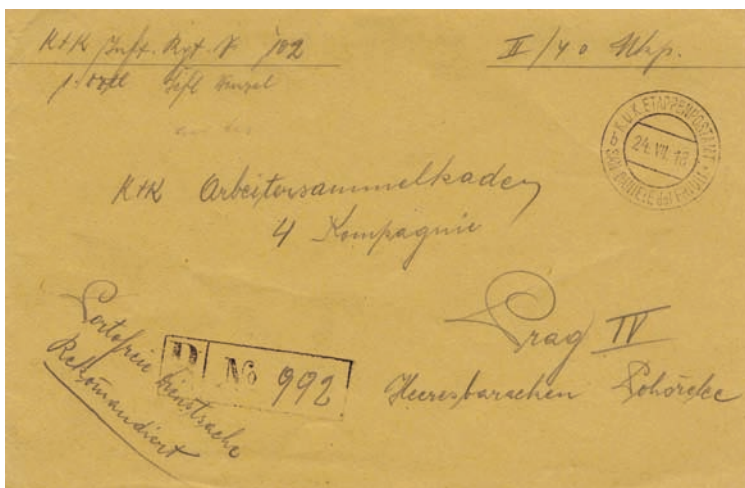 K+K Inft. Rgt. N 102
II/40 Mkp.
K.U.K. ETAPPENPOSTAMT
24. VII. 18
SAN DANIELE del FRIULI
K+K Arbeitersammelkader
4 Kompagnie
Prag IV
Heeresbarachen Pohořelec
Portofreie Dienstsache
Rekomandiert
R No 992